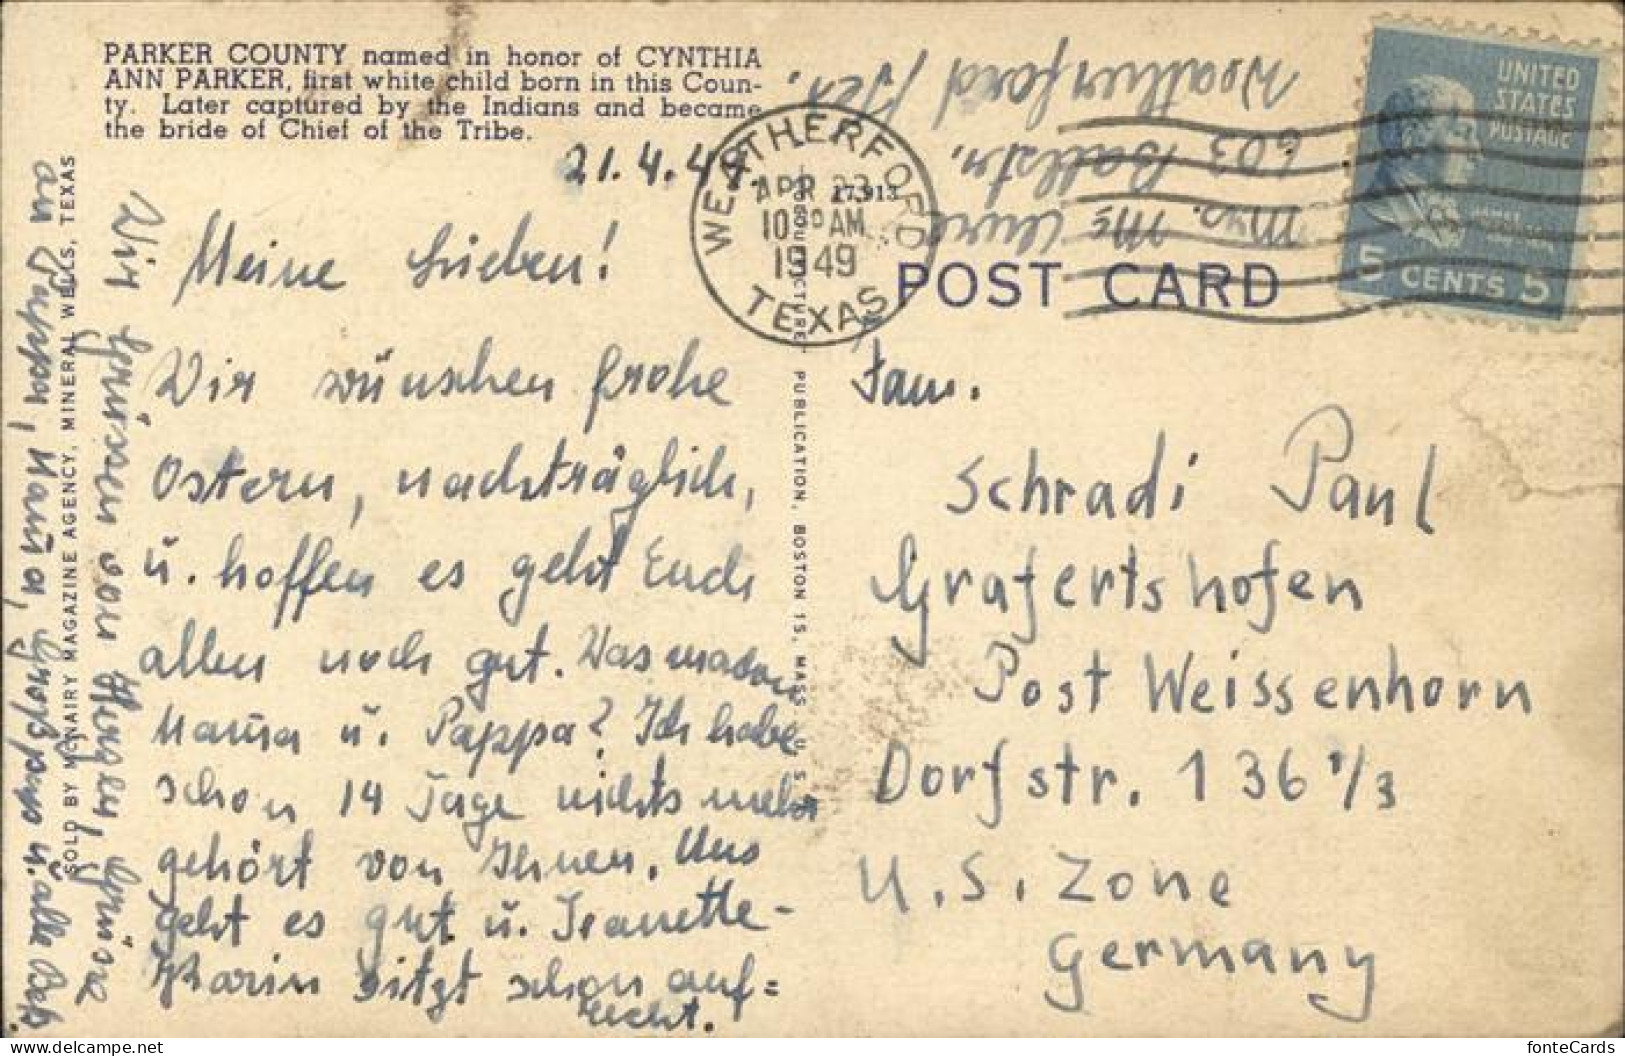 PARKER COUNTY named in honor of CYNTHIA
ANN PARKER, first white child born in this Coun-
ty. Later captured by the Indians and became
the bride of Chief of the Tribe.
21.4.49.
Meine Lieben!
Wir wünschen frohe
Ostern, nachträglich,
u. hoffen es geht Euch
allen noch gut. Was machen
Mama u. Pappa? Ich habe
schon 14 Tage nichts mehr
gehört von Ihnen. Uns
geht es gut u. Jeanette-
Karin sitzt schon auf=
recht.
Wir Grüssen von Herzen, Grüsse
an Pappa, Mama, Großpapa u. alle
SOLD BY MENAIRY MAGAZINE AGENCY, MINERAL WELLS, TEXAS
PUBLICATION, BOSTON 15, MASS., U.S.A.
WEATHERFORD
APR 23
10 30 AM
1949
TEXAS
17,913
Mrs. Mc Clure
603 Ballstr.
Weatherford / Tex.
UNITED
STATES
POSTAGE
5 CENTS 5
POST CARD
Fam.
Schradi Paul
Grafertshofen
Post Weissenhorn
Dorfstr. 136 1/3
U.S. Zone
Germany
fonteCards